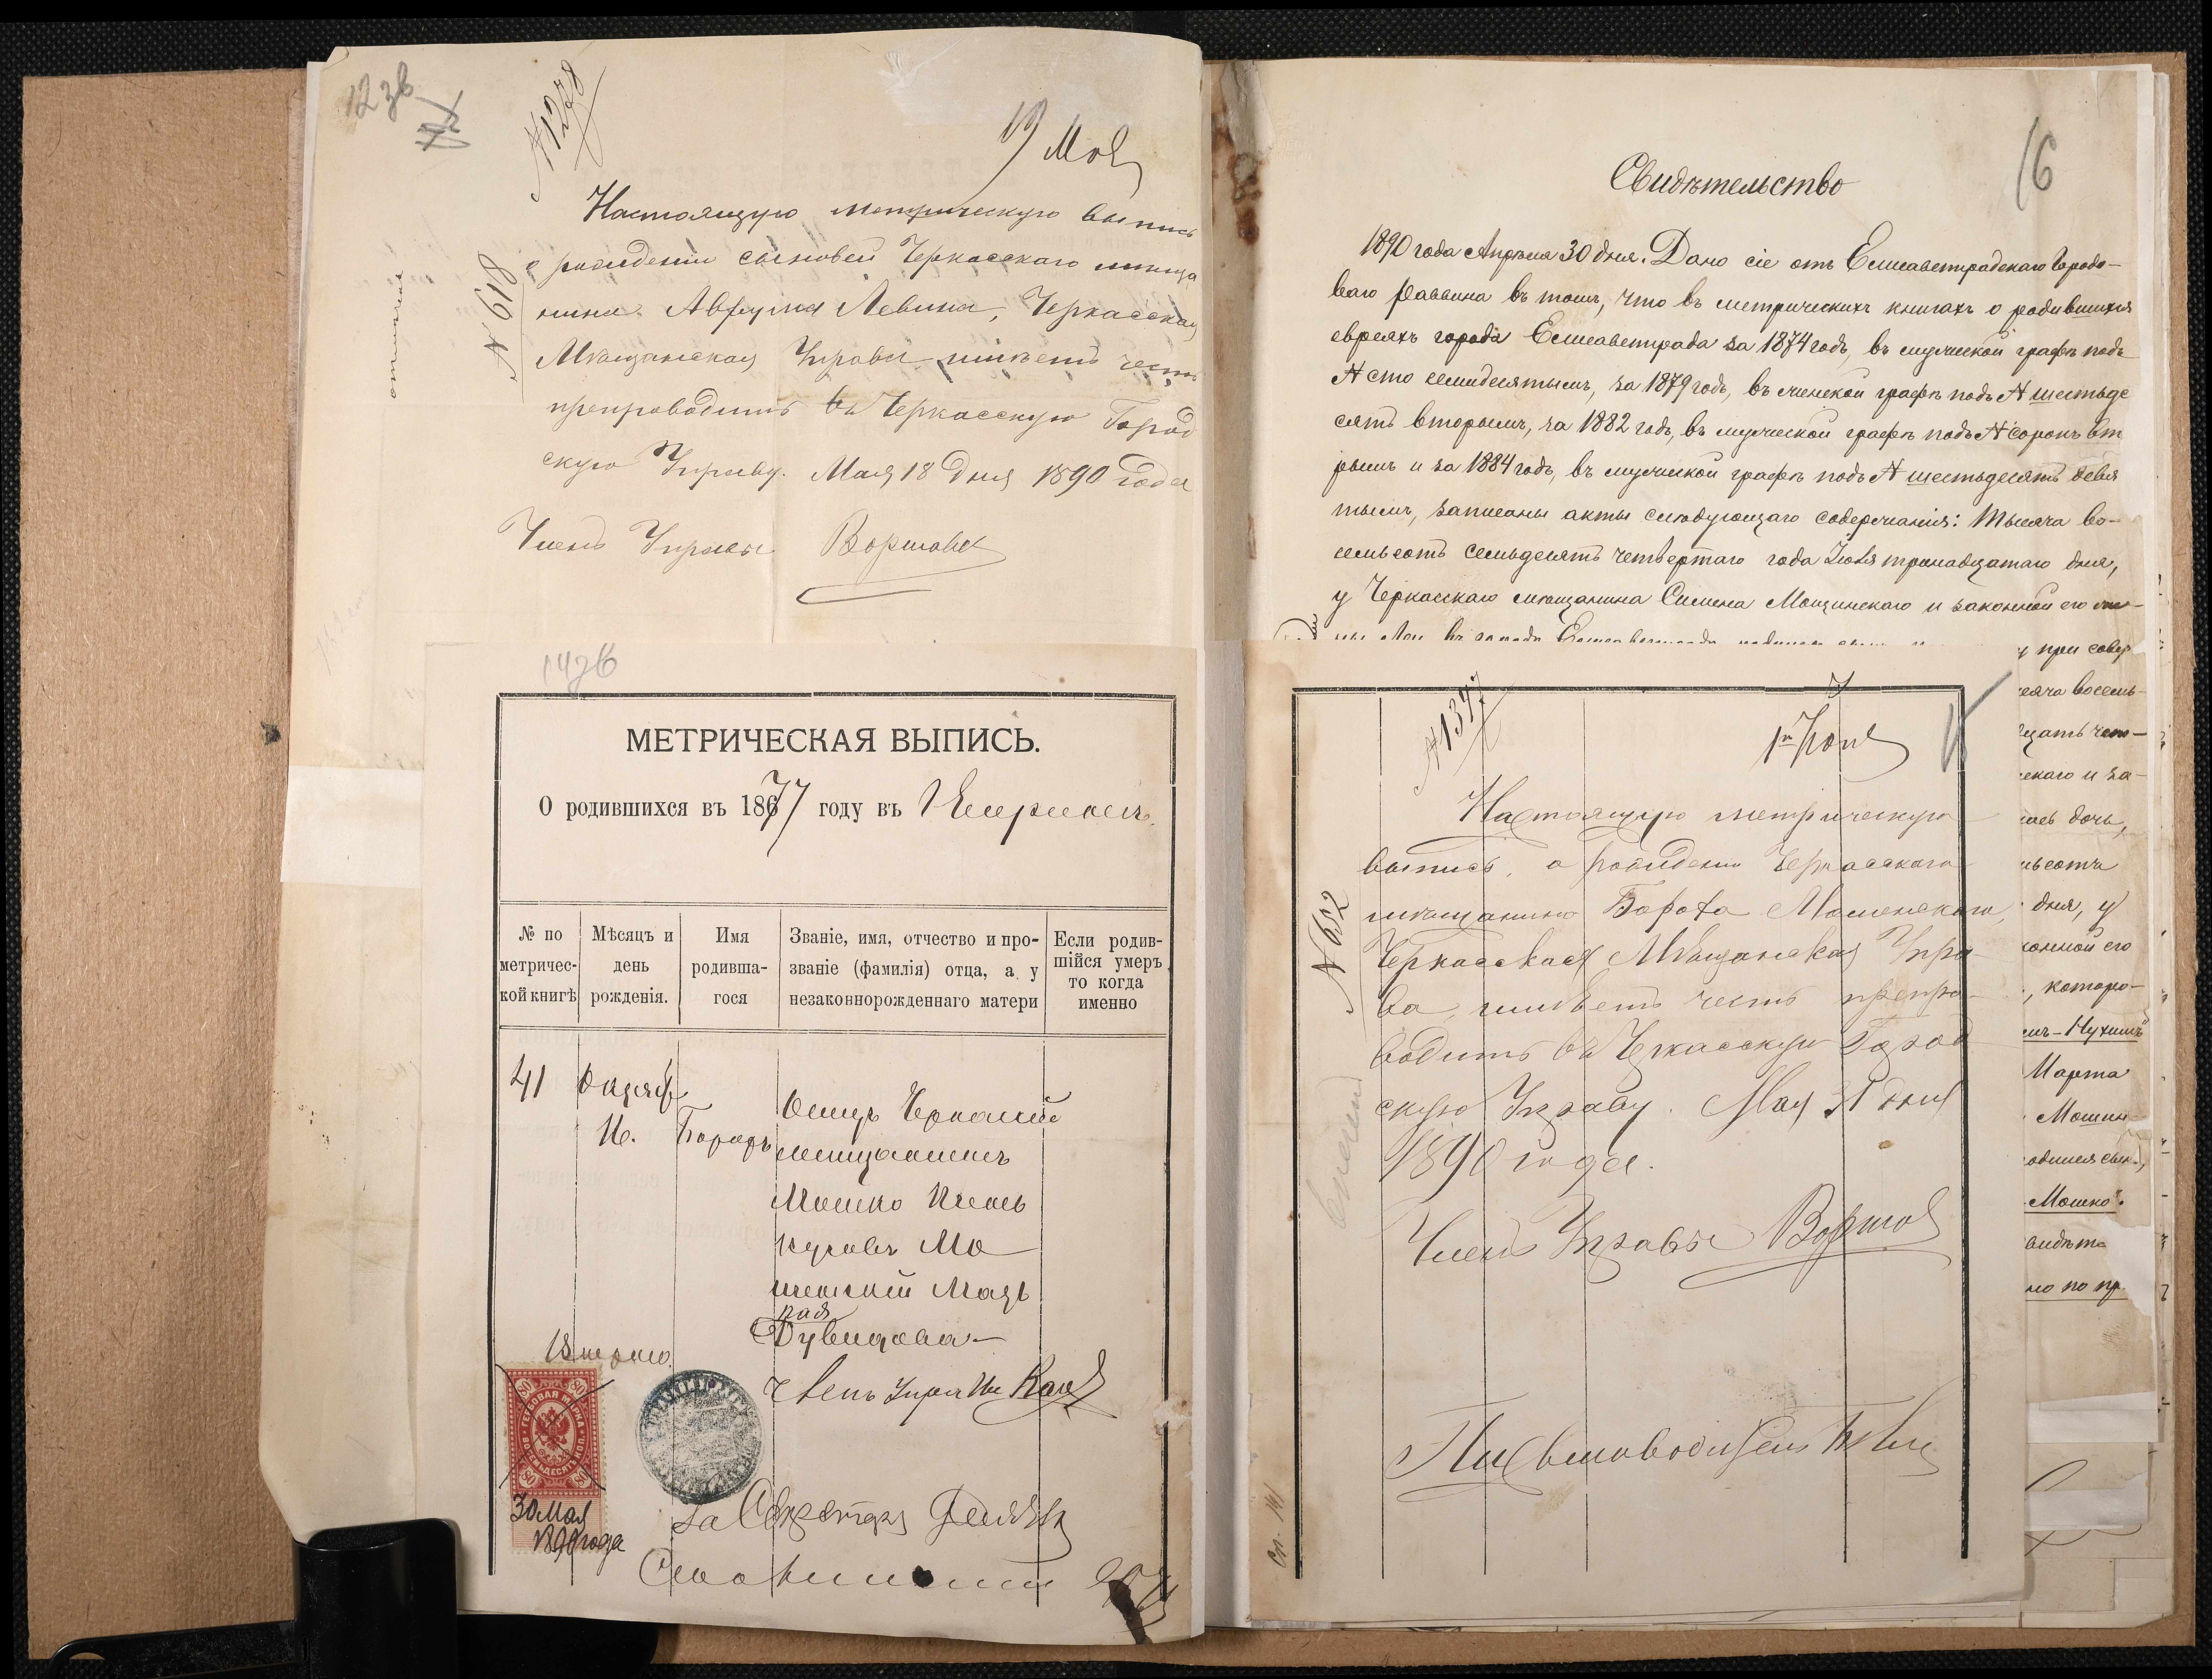 12зв
№ 1278
19 Мая
№ 618
Настоящую метрическую выпись
о рождении сыновей Черкасскаго мѣща
нина Аврума Левина, Черкасская
Мѣщанская Управа имѣетъ честь
препроводить въ Черкасскую Город
скую Управу. Мая 18 дня 1890 года
Членъ Управы
16
Свидѣтельство
1890 года Апрѣля 30 дня. Дано сіе отъ Елисаветградскаго Городо-
ваго Раввина въ томъ, что въ метрическихъ книгахъ о родившихся
евреяхъ города Елисаветграда за 1874 годъ, въ мужской графѣ подъ
№ сто семидесятымъ, за 1879 годъ, въ женской графѣ подъ № шестьде
сятъ вторымъ, за 1882 годъ, въ мужской графѣ подъ № сорокъ вт
рымъ и за 1884 годъ, въ мужской графѣ подъ № шестьдесятъ девя
тымъ, записаны акты слѣдующаго содержанія: Тысяча во-
семьсотъ семьдесятъ четвертаго года Іюля тринадцатаго дня,
у Черкасскаго мѣщанина Симона Мошинскаго и законной его же-
при совер
сяча восемь-
цать чет-
скаго и за-
лась дочь,
ьсотъ
дня, у
конной его
, которо-
мъ-Нухимъ"
Марта
Мошин
одился сынъ,
Мошко".
видѣте
но по пр
14зв
МЕТРИЧЕСКАЯ ВЫПИСЬ.
О родившихся въ 1867 7 году въ
№ по метричес- кой книгѣ
Мѣсяцъ и день рожденія.
Имя родивша- гося
Званіе, имя, отчество и про- званіе (фамилія) отца, а у незаконнорожденнаго матери
Если родив- шійся умеръ то когда именно
41
Октяб
16.
Борохъ
Отецъ Черкасскій
мещанинъ
Мошко Ицковъ
Мо
шенскій Мать
Дувидова
ГЕРБОВАЯ МАРКА
ВОСЕМЬДЕСЯТЪ КОП.
80
80
80
80
30 Мая
1890 года
Членъ Управы
За Секретаря
№ 1397
1го Іюня
15
№ 692
Настоящую метрическую
выпись, о рождении Черкасскаго
мѣщанина Бороха Мошенскаго,
Черкасская Мѣщанская Упра-
ва, имѣетъ честь препро-
водить въ Черкасскую Город
скую Управу. Мая 31 дня
1890 года.
Членъ Управы
Письмоводитель